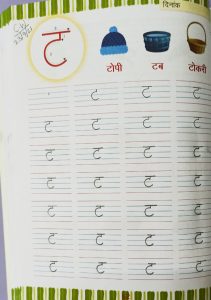 दिनांक
ट
टोपी टब टोकरी
ट ट ट
ट ट ट ट
ट ट ट ट
ट ट ट ट
ट ट ट ट
ट ट ट ट
ट ट ट ट